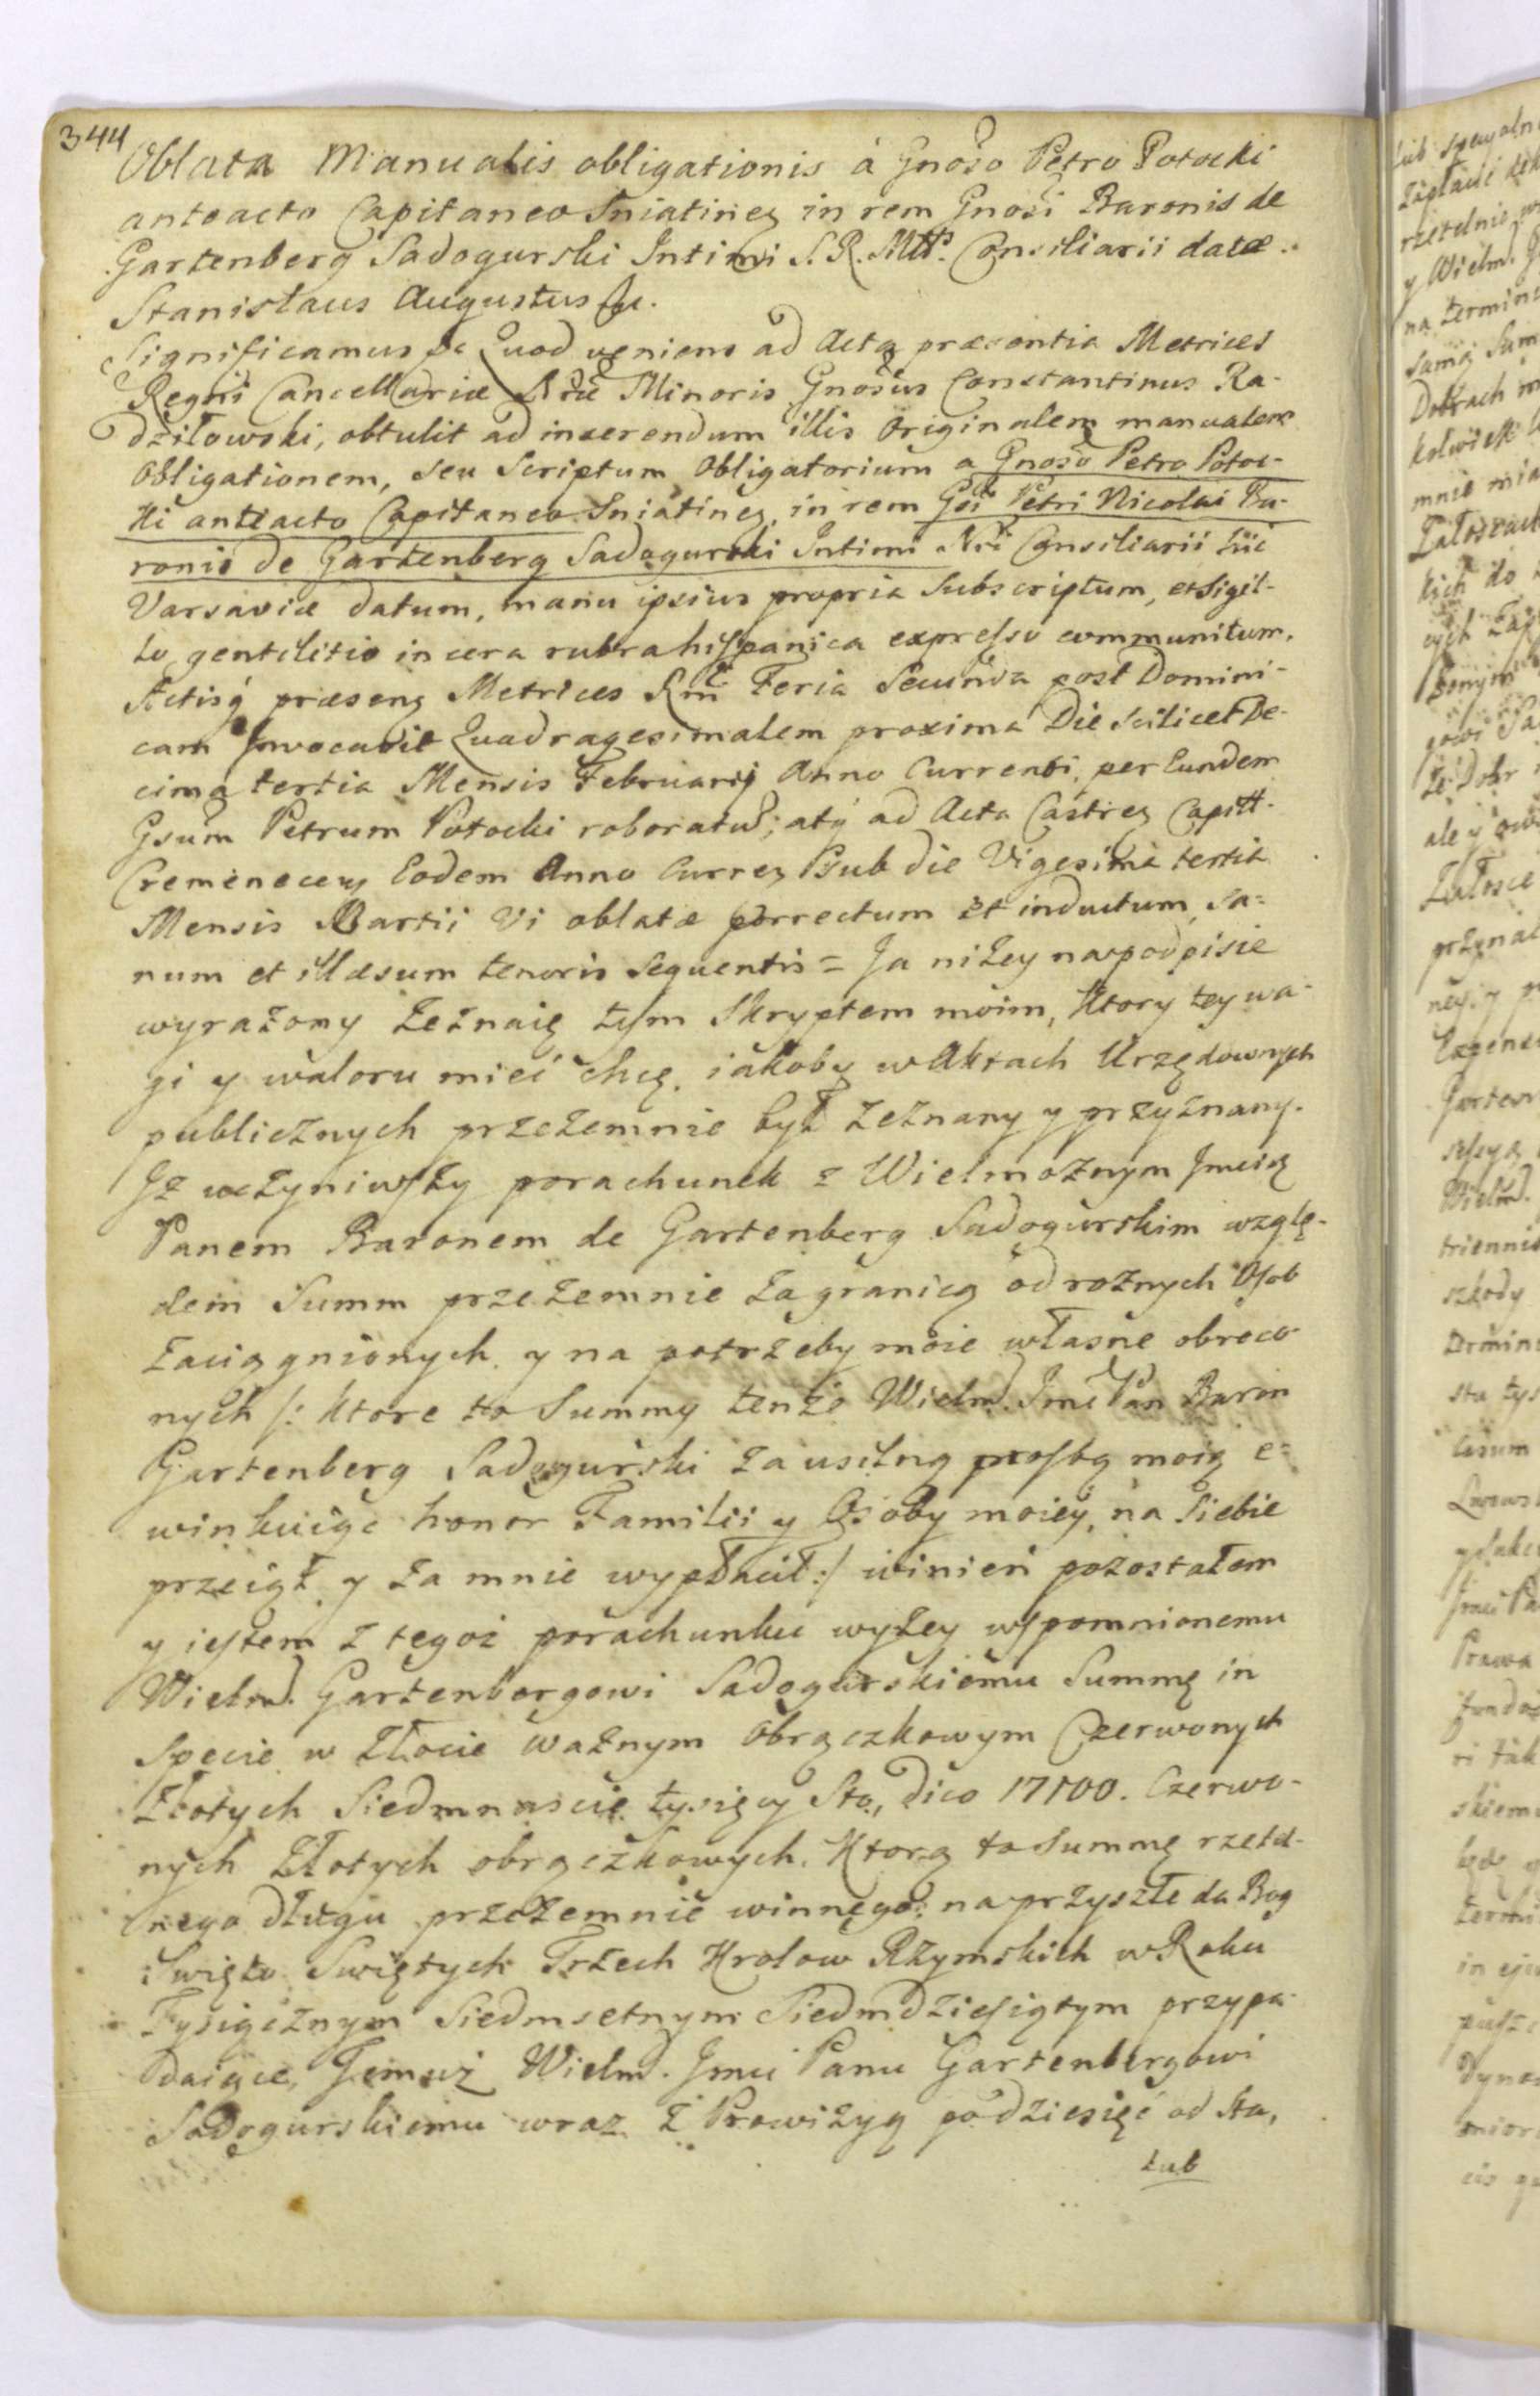 344
Oblata Manualis obligationis à Gnoso Petro Potocki
anteacto Capitaneo Sniatinen in rem Gnosi Baronis de
Gartenberg Sadogurski Intimi S. R. Mttis Consiliarii datæ.
Stanislaus Augustus &c.
Significamus &c Quod veniens ad Acta præsentia Metrices
Regni Cancellariæ Nræ Minoris Gnosus Constantinus Ra-
dziłowski, obtulit ad inserendum illis Originalem manualem
Obligationem, seu Scriptum Obligatorium a Gnoso Petro Potoc-
ki anteacto Capitaneo Sniatinen, in rem Gsi Petri Nicolai Ba-
ronis de Gartenberg Sadogurski Intimi Nri Consiliarii hic
Varsaviæ datum, manu ipsius propria Subscriptum, et Sigil-
lo gentilitio in cera rubra hispanica expresso communitum,
Actisq præsens Metrices Rni Feria Secunda post Domini-
cam Invocavit Quadragesimalem proxima Die Scilicet De-
cima tertia Mensis Februarij Anno Currenti, per Eundem
Gsum Petrum Potocki roboratum; atq ad Acta Castren Capitt.
Cremenecen Eodem Anno Curren Sub die Vigesima tertia
Mensis Martii Vi oblatæ porrectum et inductum, Sa=
num et illæsum tenoris Sequentis = Ja niżey na podpisie
wyrażony Zeznaię tym Skryptem moim, Ktory tey wa-
gi y waloru mieć chcę, iakoby w Aktach Urzędownych
publicznych przezemnie był zeznany y przyznany.
Jż uczyniwszy porachunek z Wielmożnym Jmcią
Panem Baronem de Gartenberg Sadogurskim wzglę-
dem Summ przezemnie zagranicą od rożnych Osob
zaciągnionych, y na potrzeby moie własne obroco
nych /: Ktore to Summy tenże Wielm. Jmć Pan Baron
Gartenberg Sadogurski za usilną prosbą moią e=
winkuiąc honor Familii y Osoby moiey, na Siebie
przeiął, y za mnie wypłacił :/ winien pozostałem
y iestem z tegoż porachunku wyżey wspomnionemu
Wielm. Gartenbergowi Sadogurskiemu Summę in
Specie w Złocie ważnym Obrączkowym Czerwonych
Złotych Siedmnaście tysięcy Sto, dico 17100. Czerwo-
nych Złotych obrączkowych. Ktorą to Summę rzetel-
nego długu przezemnie winnego: na przyszłe da Bog
Swięto Swiętych Trzech Krolow Rzymskich w Roku
Tysiącznym Siedmsetnym Siedmdziesiątym przypa-
daiące, Temuż Wielm. Jmci Panu Gartenbergowi
Sadogurskiemu wraz z Prowizyą po dziesięć od Sta,
lub